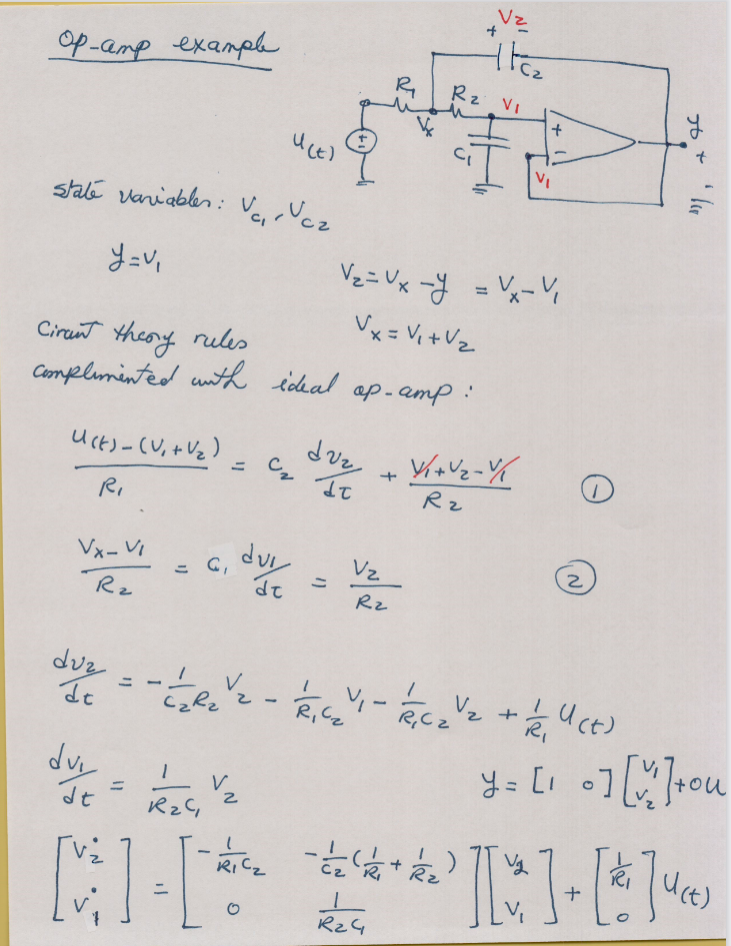 Op-amp example
V₂
+ −
C₂
R₁ R₂ V₁
Vx
U(t) + −
C₁
+
−
V₁
y
+
−
state variables: V_C₁, V_C₂
y = V₁
V₂ = Vx − y = Vx − V₁
Vx = V₁ + V₂
Circuit theory rules
complimented with ideal op-amp :
(U(t) − (V₁ + V₂)) / R₁ = C₂ dv₂/dt + (V₁ + V₂ − V₁) / R₂ ①
(Vx − V₁) / R₂ = C₁ dv₁/dt = V₂ / R₂ ②
dv₂/dt = − 1/(C₂R₂) V₂ − 1/(R₁C₂) V₁ − 1/(R₁C₂) V₂ + 1/R₁ U(t)
dv₁/dt = 1/(R₂C₁) V₂ y = [1 0] [V₁ V₂] + 0u
[V̇₂ V̇₁] = [− 1/(R₁C₂) − 1/C₂ (1/R₁ + 1/R₂) 0 1/(R₂C₁)] [V₂ V₁] + [1/R₁ 0] U(t)